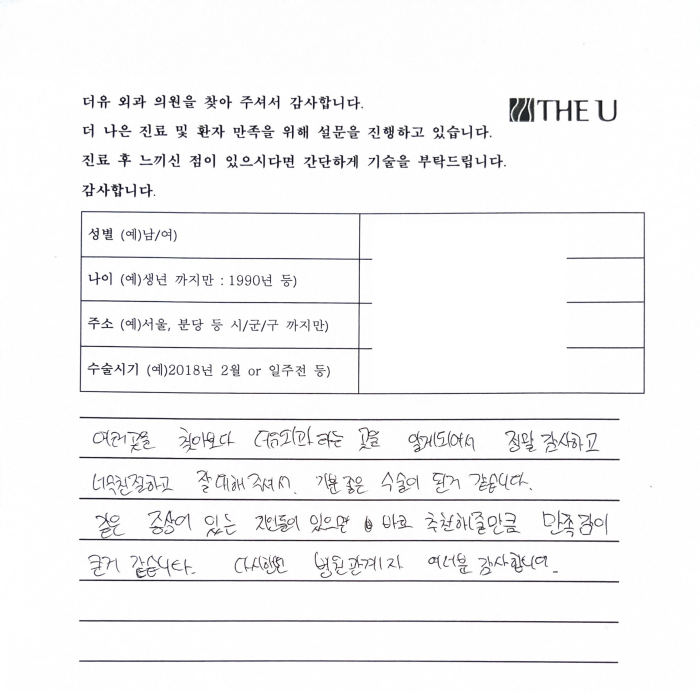 더유 외과 의원을 찾아 주셔서 감사합니다.
THE U
더 나은 진료 및 환자 만족을 위해 설문을 진행하고 있습니다.
진료 후 느끼신 점이 있으시다면 간단하게 기술을 부탁드립니다.
감사합니다.
성별 (예)남/여)
나이 (예)생년 까지만 : 1990년 등)
주소 (예)서울, 분당 등 시/군/구 까지만)
수술시기 (예)2018년 2월 or 일주전 등)
여러곳을 찾아보다 더유외과라는 곳을 알게되어서 정말 감사하고
너무친절하고 잘 대해 주셔서. 기분 좋은 수술이 된거 같습니다.
같은 증상이 있는 지인들이 있으면 바로 추천해줄만큼 만족감이
큰거 같습니다. 다시한번 병원관계자 여러분 감사합니다.